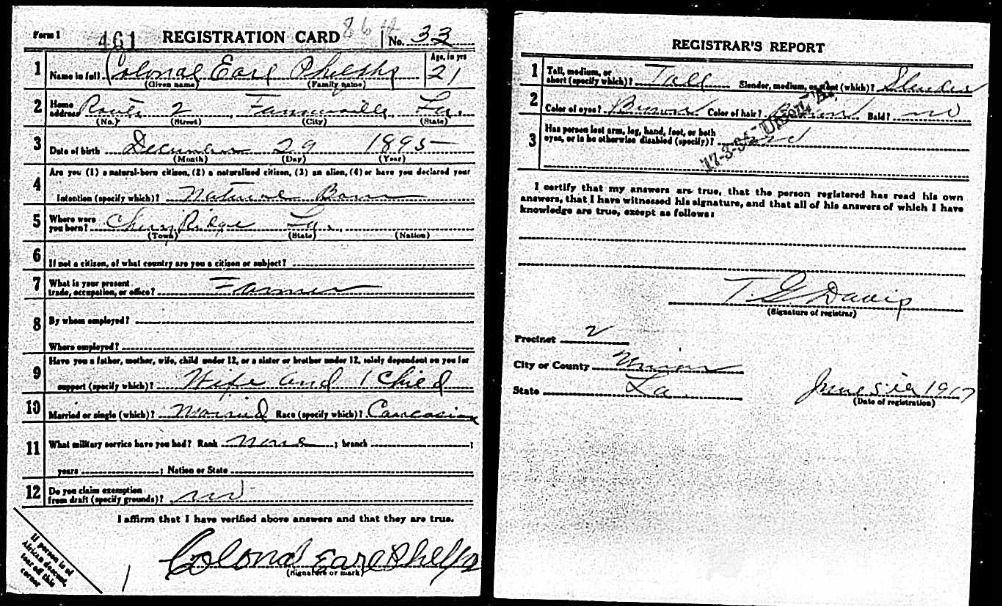 Form 1 461 REGISTRATION CARD 86 No. 33
1 Name in full Colonal Earl Phelps Age, in yrs 21
(Given name) (Family name)
2 Home address Route 2 Farmerville La.
(No.) (Street) (City) (State)
3 Date of birth December 29 1895
(Month) (Day) (Year)
4 Are you (1) a natural-born citizen, (2) a naturalized citizen, (3) an alien, (4) or have you declared your
intention (specify which)? Natural Born
5 Where were you born? Cherry Ridge La.
(Town) (State) (Nation)
6 If not a citizen, of what country are you a citizen or subject?
7 What is your present trade, occupation, or office? Farmer
8 By whom employed?
Where employed?
9 Have you a father, mother, wife, child under 12, or a sister or brother under 12, solely dependent on you for
support (specify which)? Wife and 1 Child
10 Married or single (which)? Married Race (specify which)? Caucasian
11 What military service have you had? Rank none ; branch ;
years ; Nation or State
12 Do you claim exemption from draft (specify grounds)? no
I affirm that I have verified above answers and that they are true.
Colonal Earl Phelps
(Signature or mark)
If person is of
African descent,
tear off this
corner
1
REGISTRAR'S REPORT
1 Tall, medium, or short (specify which)? Tall Slender, medium, or stout (which)? Slender
2 Color of eyes? Brown Color of hair? Brown Bald? no
3 Has person lost arm, leg, hand, foot, or both
eyes, or is he otherwise disabled (specify)? no
I certify that my answers are true, that the person registered has read his own
answers, that I have witnessed his signature, and that all of his answers of which I have
knowledge are true, except as follows:
T G Davis
(Signature of registrar)
Precinct 2
City or County Union
State La. June 5 1917
(Date of registration)